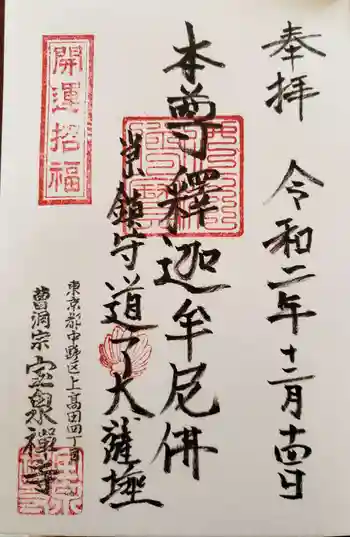 奉拝
令和二年十二月十四日
本尊釋迦牟尼佛
鎮守道了大薩埵
開運招福
東京都中野区上高田四丁目
曹洞宗宝泉禅寺